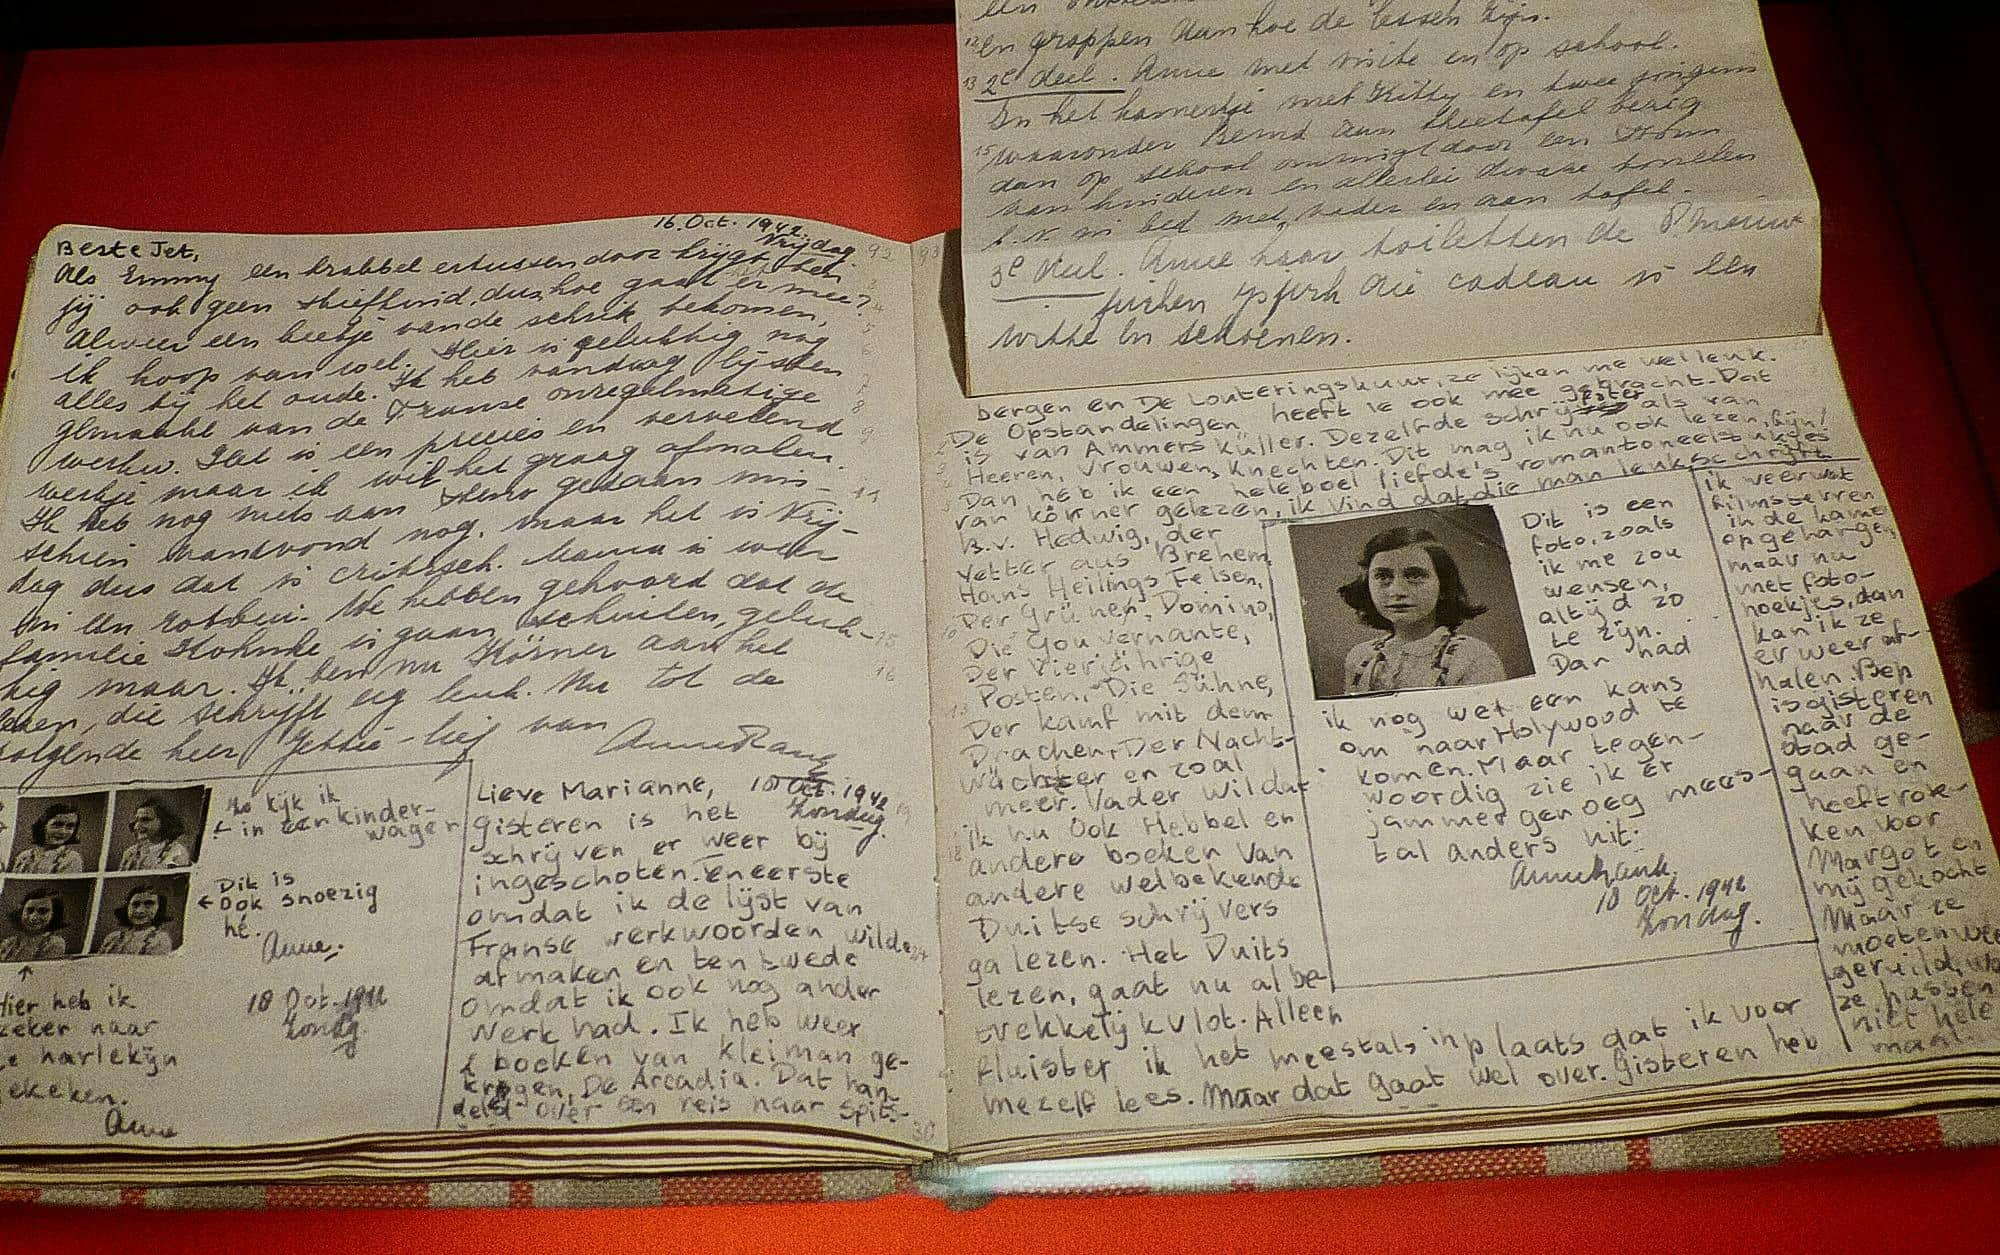 en grappen aan hoe de lessen zijn.
2e deel. Anne met visite en op school.
In het kamertje met Kitty en twee jongens
waaronder Bernd aan theetafel bezig
dan op school omringd door een
van kinderen en allerlei dwaze
b.v. in bed met vader en aan tafel.
3e deel. Anne haar toiletten de
cadeau
witte en schoenen.
16 Oct. 1942.
Vrijdag.
Beste Jet,
Als Emmy een krabbel ertussendoor krijgt ben
jij ook geen stiefkind, dus hoe gaat er mee?
Alweer een beetje van de schrik bekomen,
ik hoop van wel. Hier is gelukkig nog
alles bij het oude. Ik heb vandaag lijsten
gemaakt van de Franse onregelmatige
werkw. Het is een precies en vervelend
werkje maar ik wil het graag afmaken.
Ik heb nog niets aan Steno gedaan mis-
schien vanavond nog, maar het is Vrij-
dag dus dat is critisch. Mama is weer
in een rotbui. We hebben gehoord dat de
familie is gaan schuilen, geluk-
kig maar. Ik ben nu Körner aan het
lezen, die schrijft erg leuk. Nu tot de
volgende keer Jettie-lief van
Anne Frank
Zo kijk ik
in een kinder-
wagen
Dit is
ook snoezig
hè.
Anne.
Hier heb ik
zeker naar
de harlekijn
gekeken.
Anne
18 Oct. 1942
Zondag
Lieve Marianne,
18 Oct. 1942
Zondag.
Gisteren is het
schrijven er weer bij
ingeschoten. Ten eerste
omdat ik de lijst van
Franse werkwoorden wilde
afmaken en ten twede
omdat ik ook nog ander
werk had. Ik heb weer
2 boeken van Kleiman ge-
kregen, De Arcadia. Dat han-
deld over een reis naar Spits-
bergen en De Louteringskuur, ze lijken me wel leuk.
De Opstandelingen heeft ie ook mee gebracht. Dat
is van Ammers Küller. Dezelfde schrijfster als van
Heeren, Vrouwen, Knechten. Dit mag ik nu ook lezen, fijn!
Dan heb ik een heleboel liefde's romantoneelstukjes
van Körner gelezen, ik vind dat die man leuk schrijft.
B.v. Hedwig, der
Vetter aus Brehem,
Hans Heilings Felsen,
Der Grüner Domino,
Die Gouvernante,
Der Vierjöhrige
Posten, Die Sühne,
Der Kamf mit dem
Drachen, Der Nacht-
wächter en zoal
meer. Vader wil dat
ik nu ook Hebbel en
andere boeken van
andere welbekende
Duitse schrijvers
ga lezen. Het Duits
lezen, gaat nu al be-
trekkelijk vlot. Alleen
fluister ik het meestals, inplaats dat ik voor
mezelf lees. Maar dat gaat wel over. Gisteren heb
Dit is een
foto, zoals
ik me zou
wensen,
altijd zo
te zijn.
Dan had
ik nog wel een kans
om naar Holywood te
komen. Maar tegen-
woordig zie ik er
jammer genoeg mees-
tal anders uit.
Anne Frank.
18 Oct. 1942
Zondag.
ik weer wat
filmsterren
in de kamer
opgehangen
maar nu
met foto-
hoekjes, dan
kan ik ze
er weer af-
halen. Bep
is gisteren
naar de
stad ge-
gaan en
heeft rok-
ken voor
Margot en
mij gekocht
Maar ze
moeten weer
geruild, want
ze passen
niet hele-
maal.